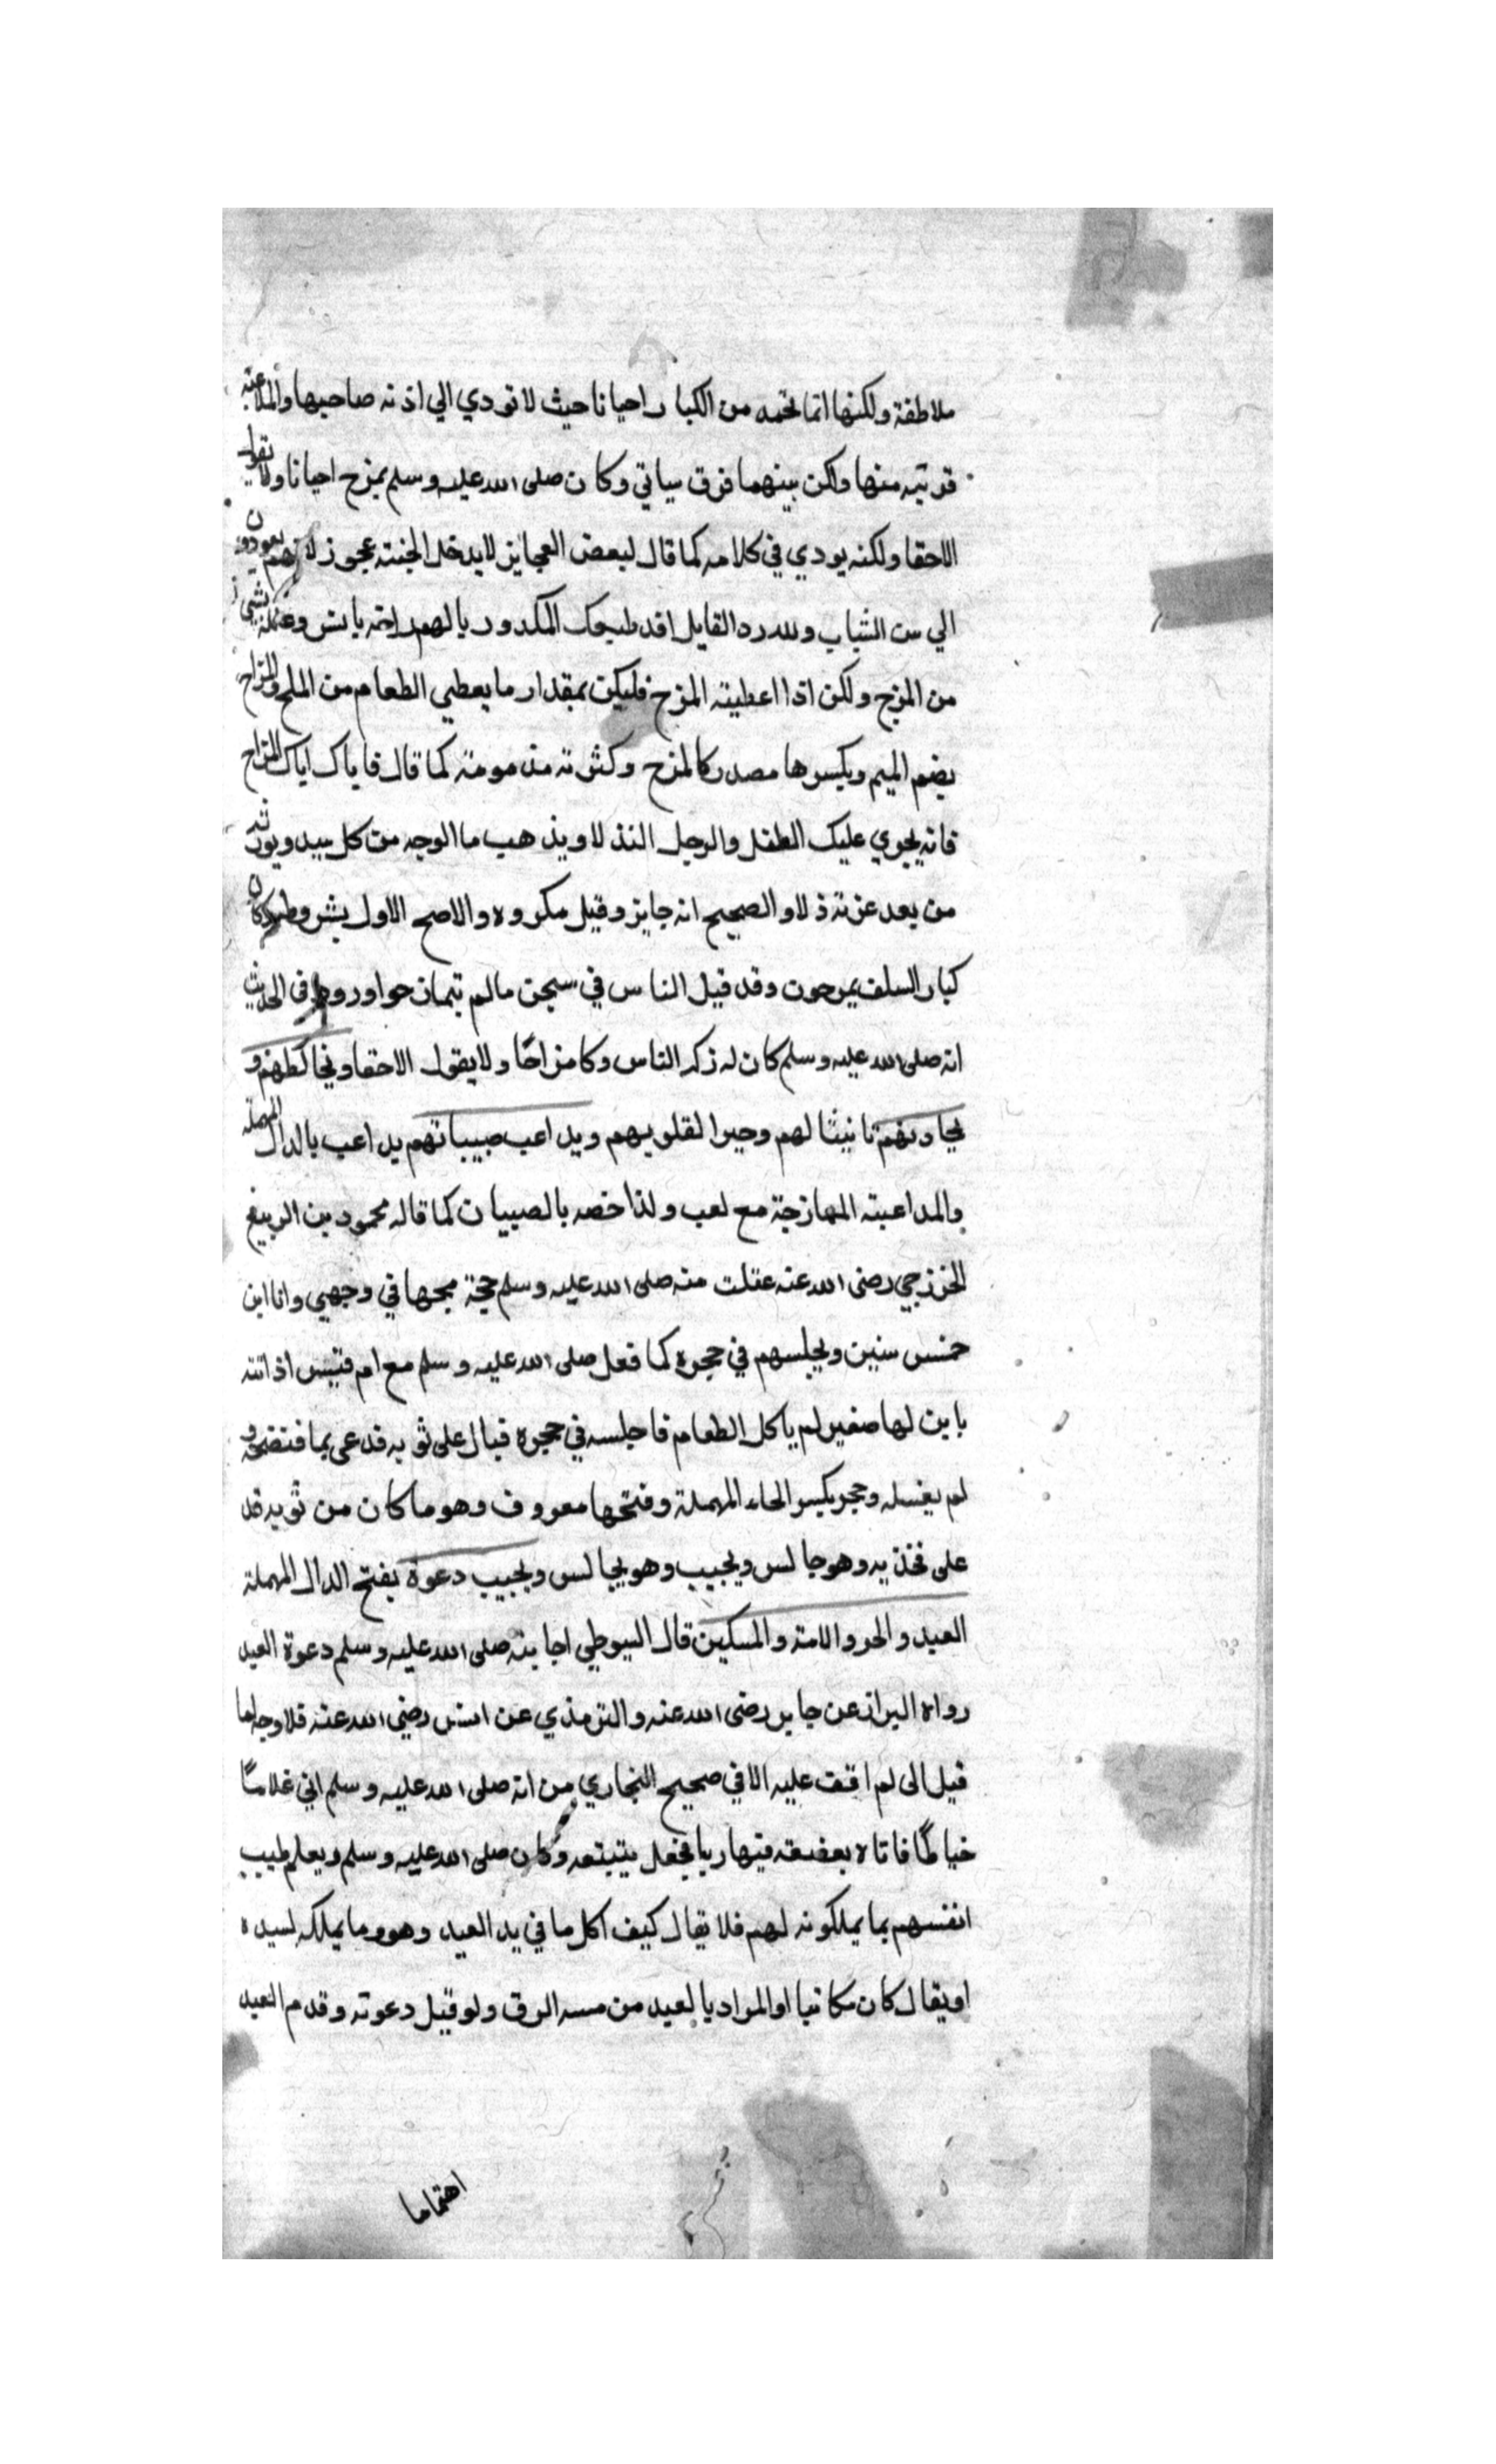 ملاطفة ولكنها انما تحمد من الكبار احيانا حيث لا تودي الي اذية صاحبها والملاعبة
قريبة منها ولكن بينهما فرق سياتي وكان صلى الله عليه وسلم يمزح احيانا ولا يقول
الاحقا ولكنه يودي في كلامه كما قال لبعض العجايز لا يدخل الجنة عجوز لانهم يعودون
الي سن الشباب ولله در القايل افد طبعك المكدود بالهم راحة بانس وعلله بشي
من المزح ولكن اذا اعطيته المزح فليكن بمقدار ما يعطي الطعام من الملح والمزاح
بضم الميم وبكسرها مصدر كالمزح وكثرته مذمومة كما قال فاياك اياك المزاح
فانه يجري عليك الطفل والرجل النذلا ويذهب ما الوجه من كل سيد ويورث
من بعد عزته ذلا والصحيح انه جايز وقيل مكروه والاصح الاول بشروطه وكان
كبار السلف يمزحون وقد قيل الناس في سجن مالم يتمازحوا وروي في الحديث
انه صلى الله عليه وسلم كان له زكر الناس وكا مزاحًا ولا يقول الاحقا ويخالطهم و
يحادثهم تانيثا لهم وجبرا لقلوبهم ويداعب صبيانهم يداعب بالدال المهملة
والمداعبة الممازجة مع لعب ولذا خصه بالصبيان كما قاله محمود بن الربيع
الخزرجي رضى الله عنه عقلت منه صلى الله عليه وسلم مجة مجها في وجهي وانا ابن
خمس سنين ويجلسهم في حجره كما فعل صلى الله عليه وسلم مع ام قيس اذ اتته
بابن لها صغير لم ياكل الطعام فاجلسه في حجره فبال على ثوبه فدعى بما فنضحه و
لم يغسله وحجر بكسر الحاء المهملة وفتحها معروف وهو ما كان من ثوبه قد
على فخذيه وهو جالس ويجيب وهو يجالس ويجيب دعوة بفتح الدال المهملة
العبد والحر والامة والمسكين قال السيوطي اجابته صلى الله عليه وسلم دعوة العبد
رواه البزاز عن جابر رضى الله عنه والترمذي عن انس رضى الله عنه فلا وجه لما
قيل انى لم اقف عليه الا في صحيح البخاري من انه صلى الله عليه وسلم اتي غلامًا
خياطًا فاتاه بقصعة فيها ربا فجعل يتبتعه وكان صلى الله عليه وسلم ويعلم طيب
انفسهم بما يملكونه لهم فلا يقال كيف اكل ما في يد العبد وهو وما يملكه لسيده
او يقال كان مكاتبا او المراد بالعبد من مسه الرق ولو قبل دعوته وقدم العبد
اهتماما